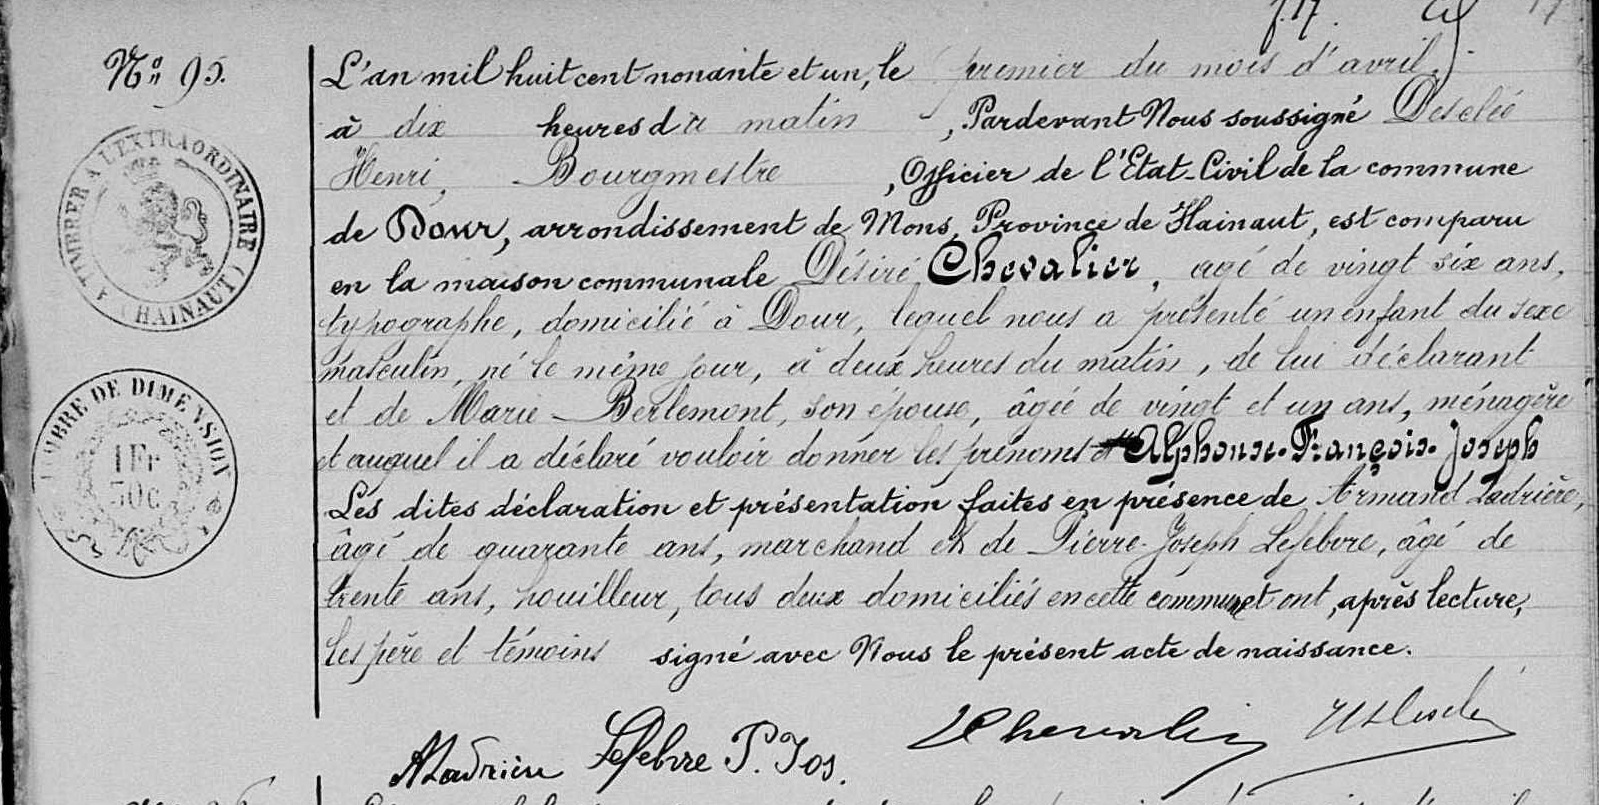 f. 17.
Nº 95.
L'an mil huit cent nonante et un, le premier du mois d'avril,
à dix heures du matin, Pardevant Nous soussigné Desclée
Henri, Bourgmestre, Officier de l'Etat-Civil de la commune
de Dour, arrondissement de Mons, Province de Hainaut, est comparu
en la maison communale Désiré Chevalier, agé de vingt six ans,
typographe, domicilié à Dour, lequel nous a présenté un enfant du sexe
masculin, né le même jour, à deux heures du matin, de lui déclarant
et de Marie Berlemont, son épouse, âgée de vingt et un ans, ménagère
et auquel il a déclaré vouloir donner les prénoms d' Alphonse-François-Joseph
Les dites déclaration et présentation faites en présence de Armand Ladrière,
âgé de quarante ans, marchand et de Pierre-Joseph Lefebvre, âgé de
trente ans, houilleur, tous deux domiciliés en cette commune et ont, après lecture,
les père et témoins signé avec Nous le présent acte de naissance.
A Ladrière Lefebvre P. Jos. Chevalier H Desclée
A TIMBRER A L'EXTRAORDINAIRE
(HAINAUT)
TIMBRE DE DIMENSION
1 Fr
50 C